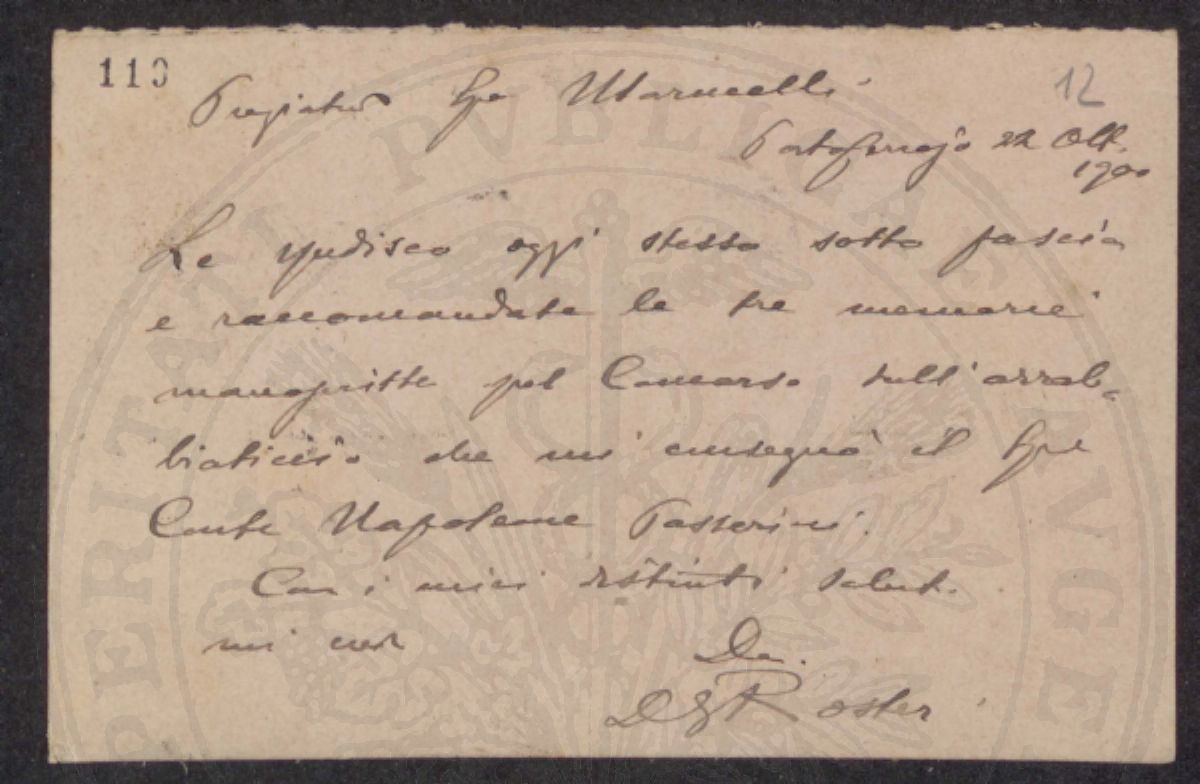 110
12
Pregiatmo Sigre Marucelli
Portoferrajo 22 Ott.
1900
Le spedisco oggi stesso sotto fascia
e raccomandate le tre memorie
manoscritte pel Concorso sull'arrab-
biaticcio che mi consegnò il Sigre
Conte Napoleone Passerini.
Con i miei distinti saluti
mi creda
Dev.
D G Roster
PROSPERITATI PVBLICAE AVGE